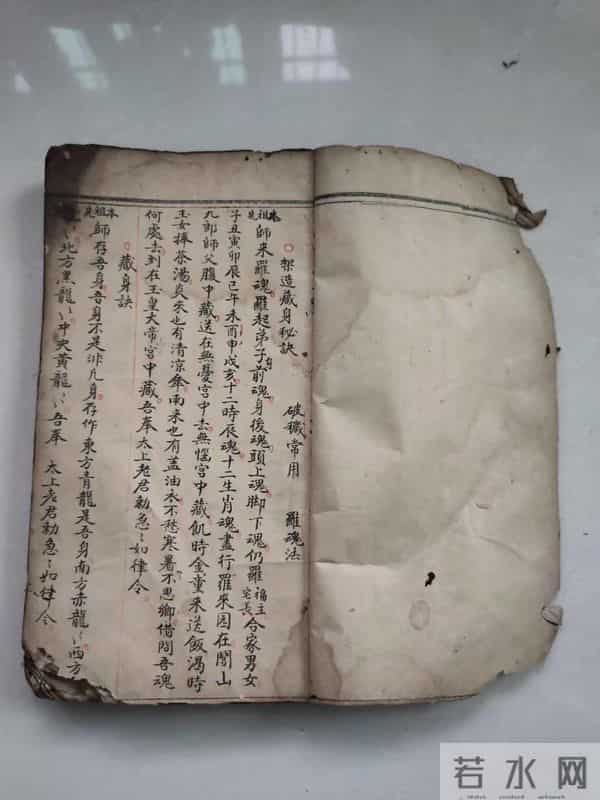 架造藏身秘訣　破穢常用　羅魂法
本祖先師來羅魂羅起弟子前魂身後魂頭上魂脚下魂仍羅福主宅長合家男女
子丑寅卯辰巳午未酉申戌亥十二時辰魂十二生肖魂盡行羅來因在閭山
九郎師父腹中藏送在無憂宮中去無惱宮中藏飢時金童來送飯渴時
玉女捧茶湯炎來也有清凉傘雨來也有蓋油衣不愁寒暑不思鄉借問吾魂
何處去到在玉皇大帝宮中藏吾奉太上老君勅急〻如律令
藏身訣
本祖先師存吾身吾身不是非凡身存作東方青龍是吾身南方赤龍〻〻西方
〻〻北方黑龍〻〻中央黃龍〻〻吾奉　太上老君勅急〻如律令
若水网